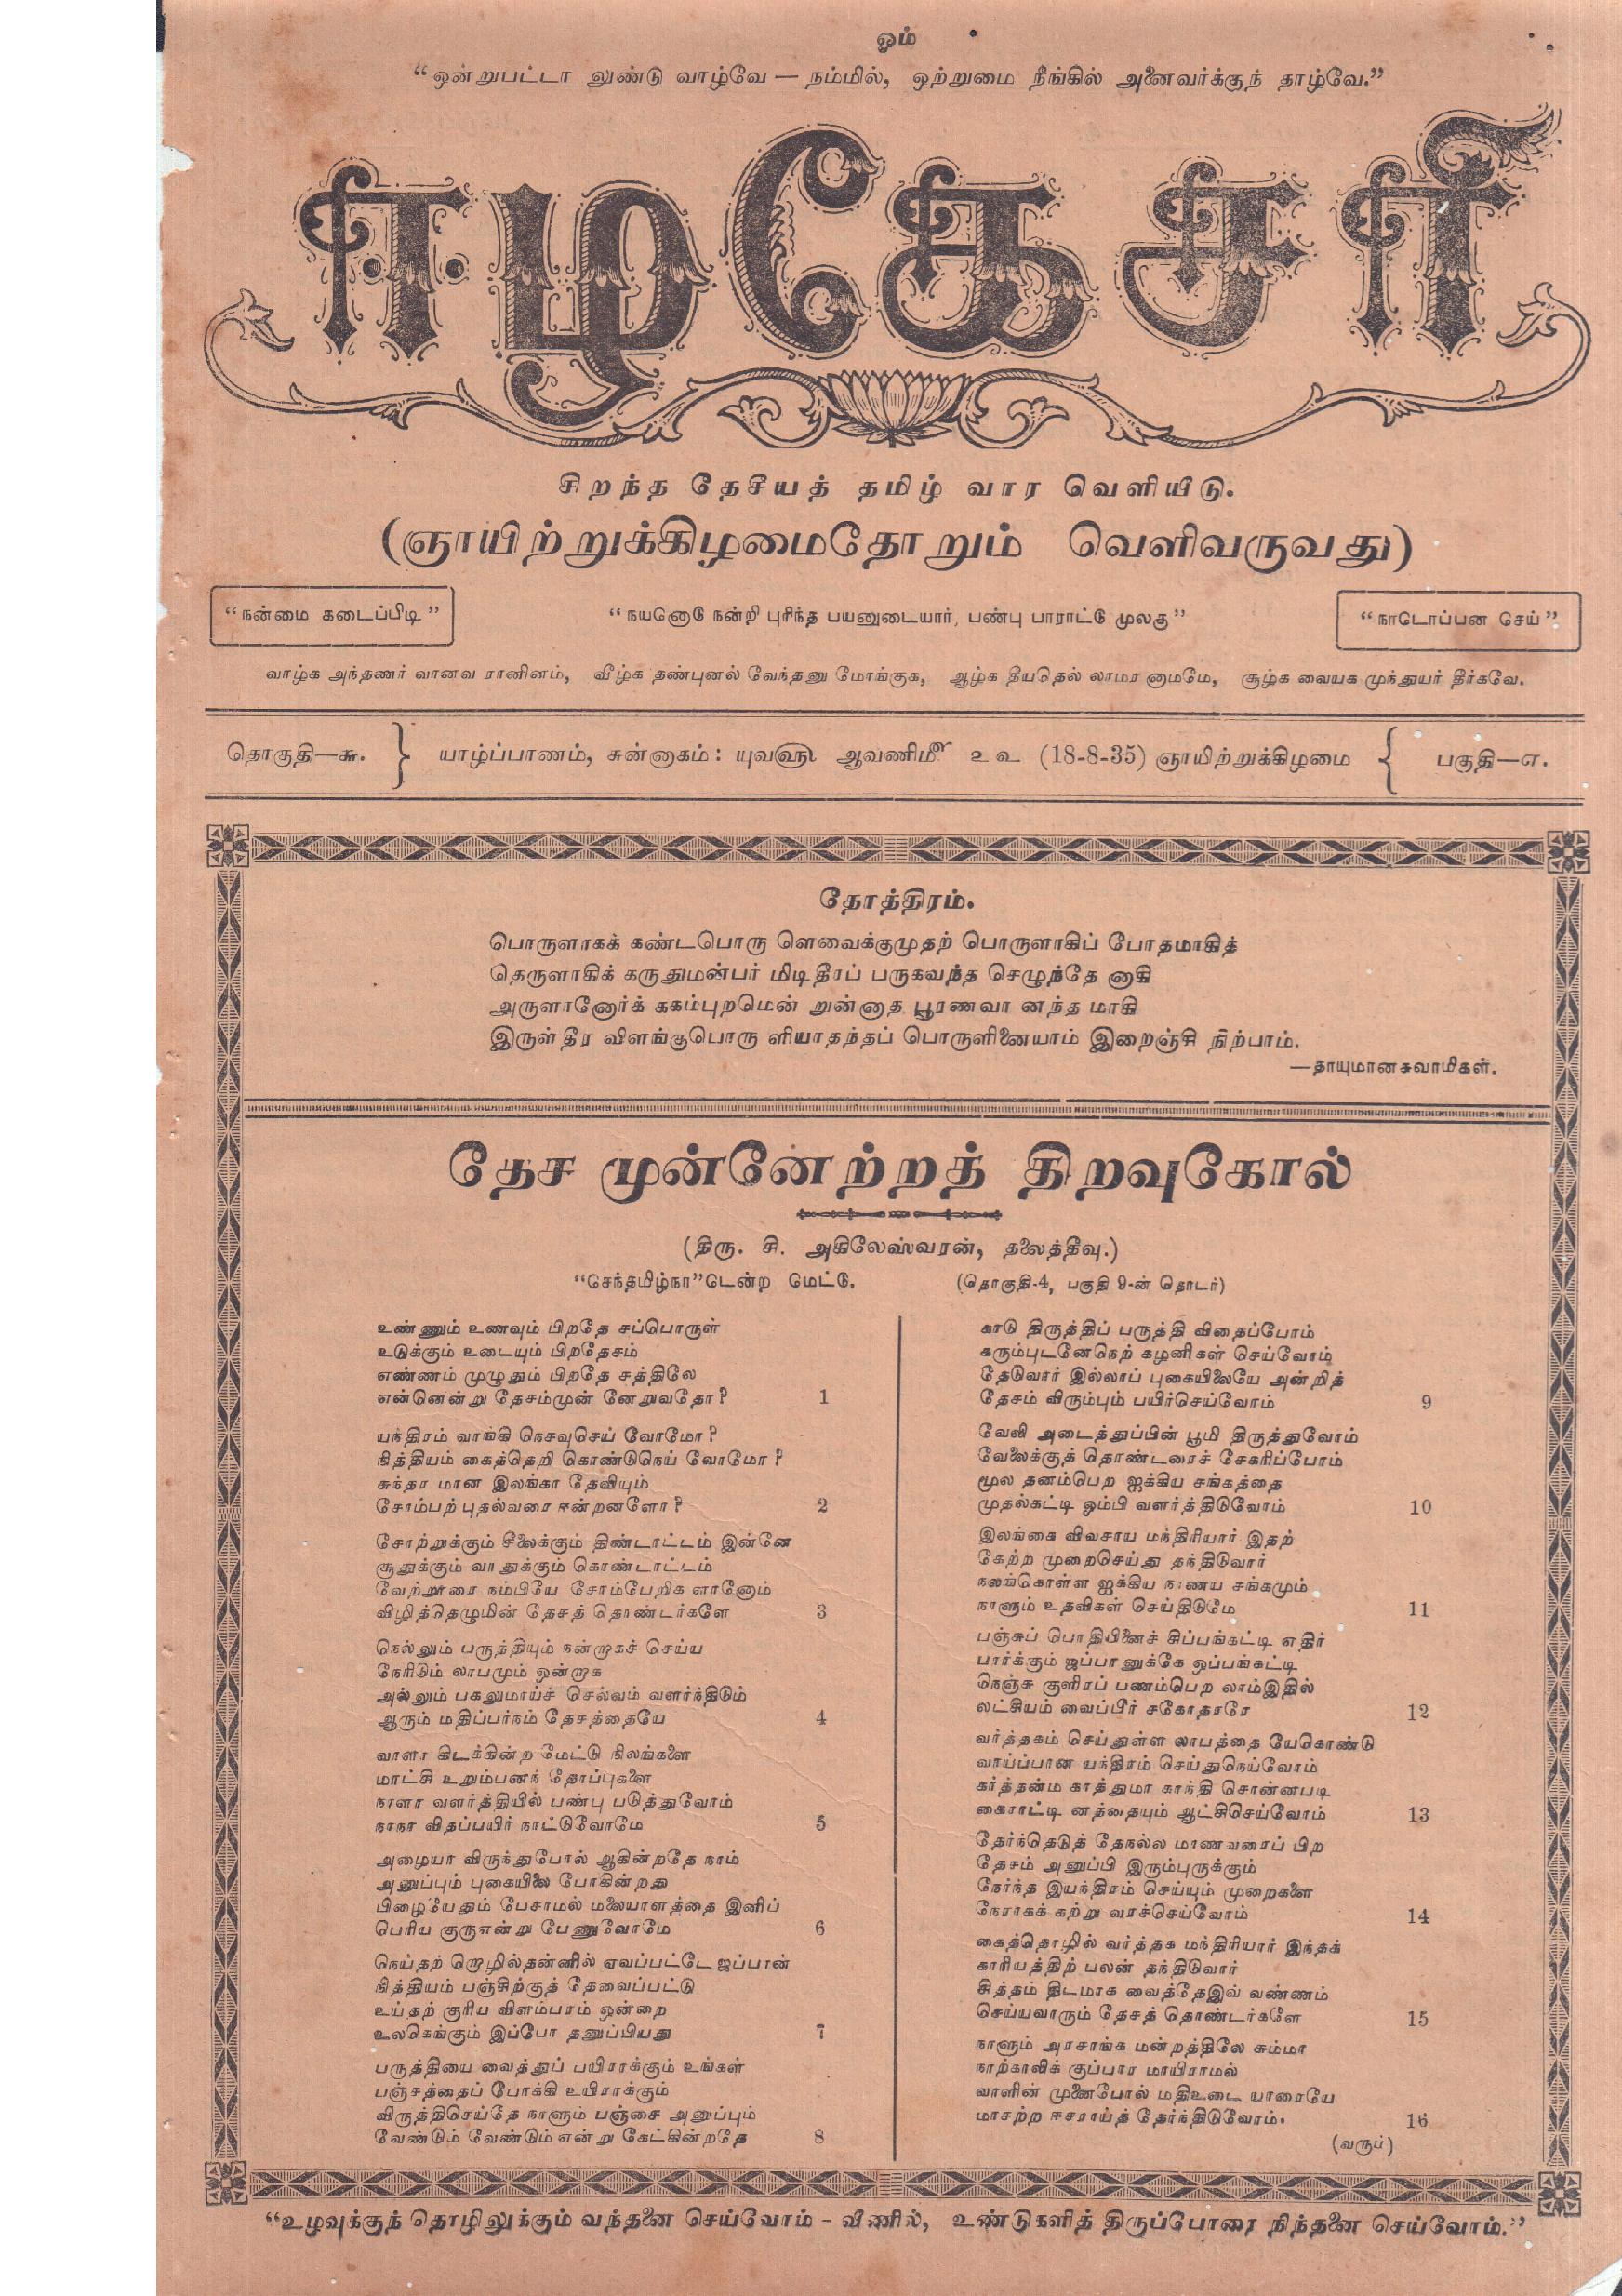 ஓம்
“ஒன்றுபட்டா லுண்டு வாழ்வே — நம்மில், ஒற்றுமை நீங்கில் அனைவர்க்குந் தாழ்வே.”
ஈழகேசரி
சிறந்த தேசீயத் தமிழ் வார வெளியீடு.
(ஞாயிற்றுக்கிழமைதோறும் வெளிவருவது)
“நன்மை கடைப்பிடி”
“நயனொடு நன்றி புரிந்த பயனுடையார், பண்பு பாராட்டு முலகு”
“நாடொப்பன செய்”
வாழ்க அந்தணர் வானவ ரானினம், வீழ்க தண்புனல் வேந்தனு மோங்குக, ஆழ்க தீயதெல் லாமர னாமமே, சூழ்க வையக முந்துயர் தீர்கவே.
தொகுதி—௬. } யாழ்ப்பாணம், சுன்னாகம்: யுவ௵ ஆவணி௴ ௨ ௳ (18-8-35) ஞாயிற்றுக்கிழமை { பகுதி—௭.
தோத்திரம்.
பொருளாகக் கண்டபொரு ளெவைக்குமுதற் பொருளாகிப் போதமாகித்
தெருளாகிக் கருதுமன்பர் மிடிதீரப் பருகவந்த செழுந்தே னாகி
அருளானோர்க் ககம்புறமென் றுன்னாத பூரணவா னந்த மாகி
இருள்தீர விளங்குபொரு ளியாதந்தப் பொருளினையாம் இறைஞ்சி நிற்பாம்.
—தாயுமானசுவாமிகள்.
தேச முன்னேற்றத் திறவுகோல்
(திரு. சி. அகிலேஸ்வரன், தலைத்தீவு.)
“செந்தமிழ்நா”டென்ற மெட்டு.
(தொகுதி-4, பகுதி 9-ன் தொடர்)
உண்ணும் உணவும் பிறதே சப்பொருள்
உடுக்கும் உடையும் பிறதேசம்
எண்ணம் முழுதும் பிறதே சத்திலே
என்னென்று தேசம்முன் னேறுவதோ? 1
யந்திரம் வாங்கி நெசவுசெய் வோமோ?
நித்தியம் கைத்தெறி கொண்டுநெய் வோமோ?
சுந்தர மான இலங்கா தேவியும்
சோம்பற் புதல்வரை ஈன்றனளோ? 2
சோற்றுக்கும் சீலைக்கும் திண்டாட்டம் இன்னே
சூதுக்கும் வாதுக்கும் கொண்டாட்டம்
வேற்றூரை நம்பியே சோம்பேறிக ளானோம்
விழித்தெழுமின் தேசத் தொண்டர்களே 3
நெல்லும் பருத்தியும் நன்றாகச் செய்ய
நேரிடும் லாபமும் ஒன்றாக
அல்லும் பகலுமாய்ச் செல்வம் வளர்ந்திடும்
ஆரும் மதிப்பர்நம் தேசத்தையே 4
வாளா கிடக்கின்ற மேட்டு நிலங்களை
மாட்சி உறும்பனந் தோப்புகளை
நாளா வளர்த்தியில் பண்பு படுத்துவோம்
நாநா விதப்பயிர் நாட்டுவோமே 5
அழையா விருந்துபோல் ஆகின்றதே நாம்
அனுப்பும் புகையிலை போகின்றது
பிழையேதும் பேசாமல் மலையாளத்தை இனிப்
பெரிய குருஎன்று பேணுவோமே 6
நெய்தற் றொழில்தன்னில் ஏவப்பட்டே ஜப்பான்
நித்தியம் பஞ்சிற்குத் தேவைப்பட்டு
உய்தற் குரிய விளம்பரம் ஒன்றை
உலகெங்கும் இப்போ தனுப்பியது 7
பருத்தியை வைத்துப் பயிராக்கும் உங்கள்
பஞ்சத்தைப் போக்கி உயிராக்கும்
விருத்திசெய்தே நாளும் பஞ்சை அனுப்பும்
வேண்டும் வேண்டும் என்று கேட்கின்றதே 8
காடு திருத்திப் பருத்தி விதைப்போம்
கரும்புடனேநெற் கழனிகள் செய்வோம்
தேடுவார் இல்லாப் புகையிலையே அன்றித்
தேசம் விரும்பும் பயிர்செய்வோம் 9
வேலி அடைத்துப்பின் பூமி திருத்துவோம்
வேலைக்குத் தொண்டரைச் சேகரிப்போம்
மூல தனம்பெற ஐக்கிய சங்கத்தை
முதல்கட்டி ஓம்பி வளர்த்திடுவோம் 10
இலங்கை விவசாய மந்திரியார் இதற்
கேற்ற முறைசெய்து தந்திடுவார்
நலங்கொள்ள ஐக்கிய நாணய சங்கமும்
நாளும் உதவிகள் செய்திடுமே 11
பஞ்சுப் பொதியினைச் சிப்பங்கட்டி எதிர்
பார்க்கும் ஜப்பானுக்கே ஒப்பங்கட்டி
நெஞ்சு குளிரப் பணம்பெற லாம்இதில்
லட்சியம் வைப்பீர் சகோதரரே 12
வர்த்தகம் செய்துள்ள லாபத்தை யேகொண்டு
வாய்ப்பான யந்திரம் செய்துநெய்வோம்
கர்த்தன்ம காத்துமா காந்தி சொன்னபடி
கைராட்டி னத்தையும் ஆட்சிசெய்வோம் 13
தேர்ந்தெடுத் தேநல்ல மாணவரைப் பிற
தேசம் அனுப்பி இரும்புருக்கும்
நேர்ந்த இயந்திரம் செய்யும் முறைகளை
நேராகக் கற்று வரச்செய்வோம் 14
கைத்தொழில் வர்த்தக மந்திரியார் இந்தக்
காரியத்திற் பலன் தந்திடுவார்
சித்தம் திடமாக வைத்தேஇவ் வண்ணம்
செய்யவாரும் தேசத் தொண்டர்களே 15
நாளும் அரசாங்க மன்றத்திலே சும்மா
நாற்காலிக் குப்பார மாயிராமல்
வாளின் முனைபோல் மதிஉடை யாரையே
மாசற்ற ஈசராய்த் தேர்ந்திடுவோம். 16
(வரும்)
“உழவுக்குந் தொழிலுக்கும் வந்தனை செய்வோம் - வீணில், உண்டுகளித் திருப்போரை நிந்தனை செய்வோம்.”